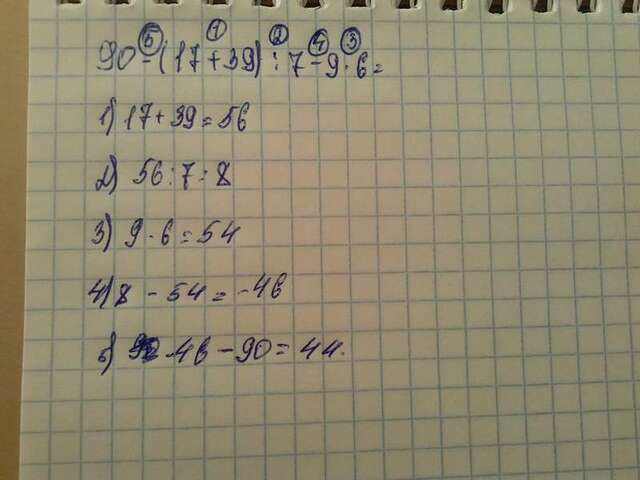 90 - (17 + 39) : 7 - 9 · 6 =
1) 17 + 39 = 56
2) 56 : 7 = 8
3) 9 · 6 = 54
4) 8 - 54 = -46
5) 46 - 90 = 44.